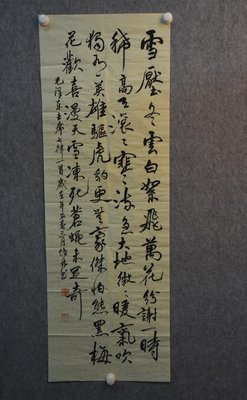 雪壓冬雲白絮飛萬花紛謝一時
稀高天滾〻寒流急大地微〻暖氣吹
獨有英雄驅虎豹更無豪傑怕熊羆梅
花歡喜漫天雪凍死蒼蠅未足奇
毛澤東主席七律一首歲在年三月